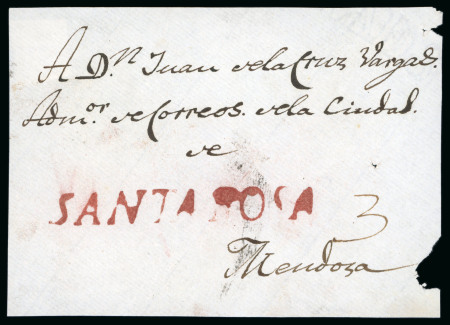 A D.n Juan dela Cruz Vargas.
Adm.or de Correos. dela Ciudad.
de
SANTA ROSA 3
Mendoza